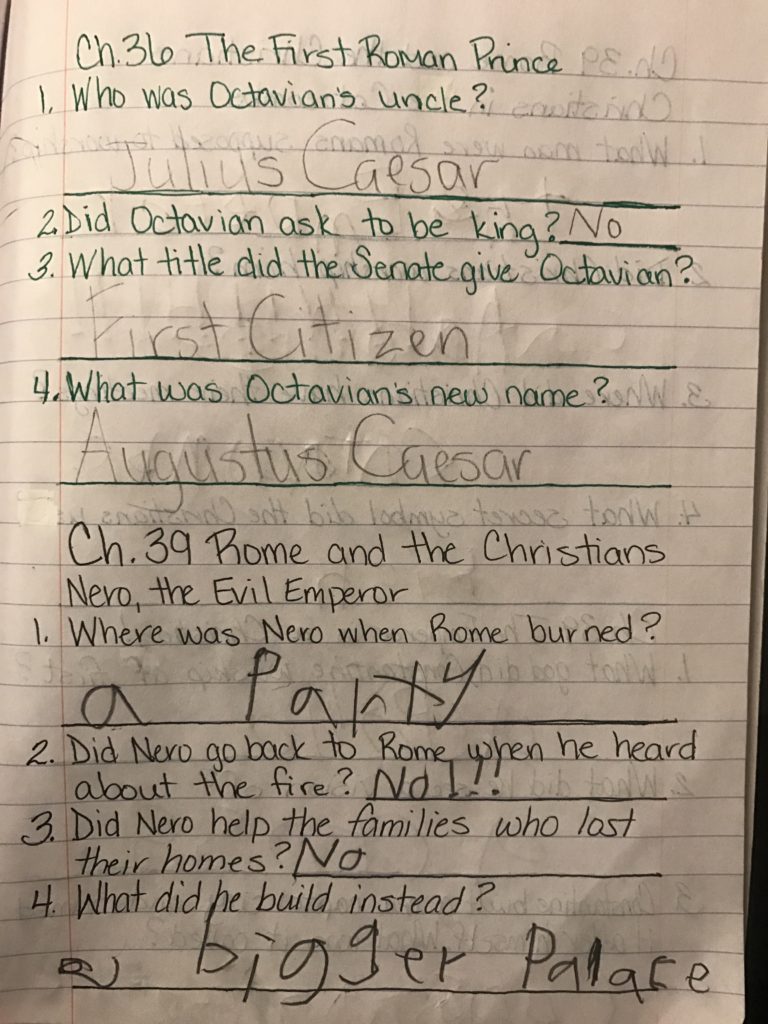 Ch.36 The First Roman Prince
1. Who was Octavian's uncle?
Juliu's Caesar
2. Did Octavian ask to be king? No
3. What title did the Senate give Octavian?
First Citizen
4. What was Octavian's new name?
Augustus Caesar
Ch. 39 Rome and the Christians
Nero, the Evil Emperor
1. Where was Nero when Rome burned?
a Party
2. Did Nero go back to Rome when he heard
about the fire? No!!!
3. Did Nero help the families who lost
their homes? No
4. What did he build instead?
a bigger Palace